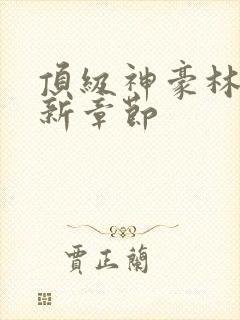 頂級神豪林
新章節
賈正蘭